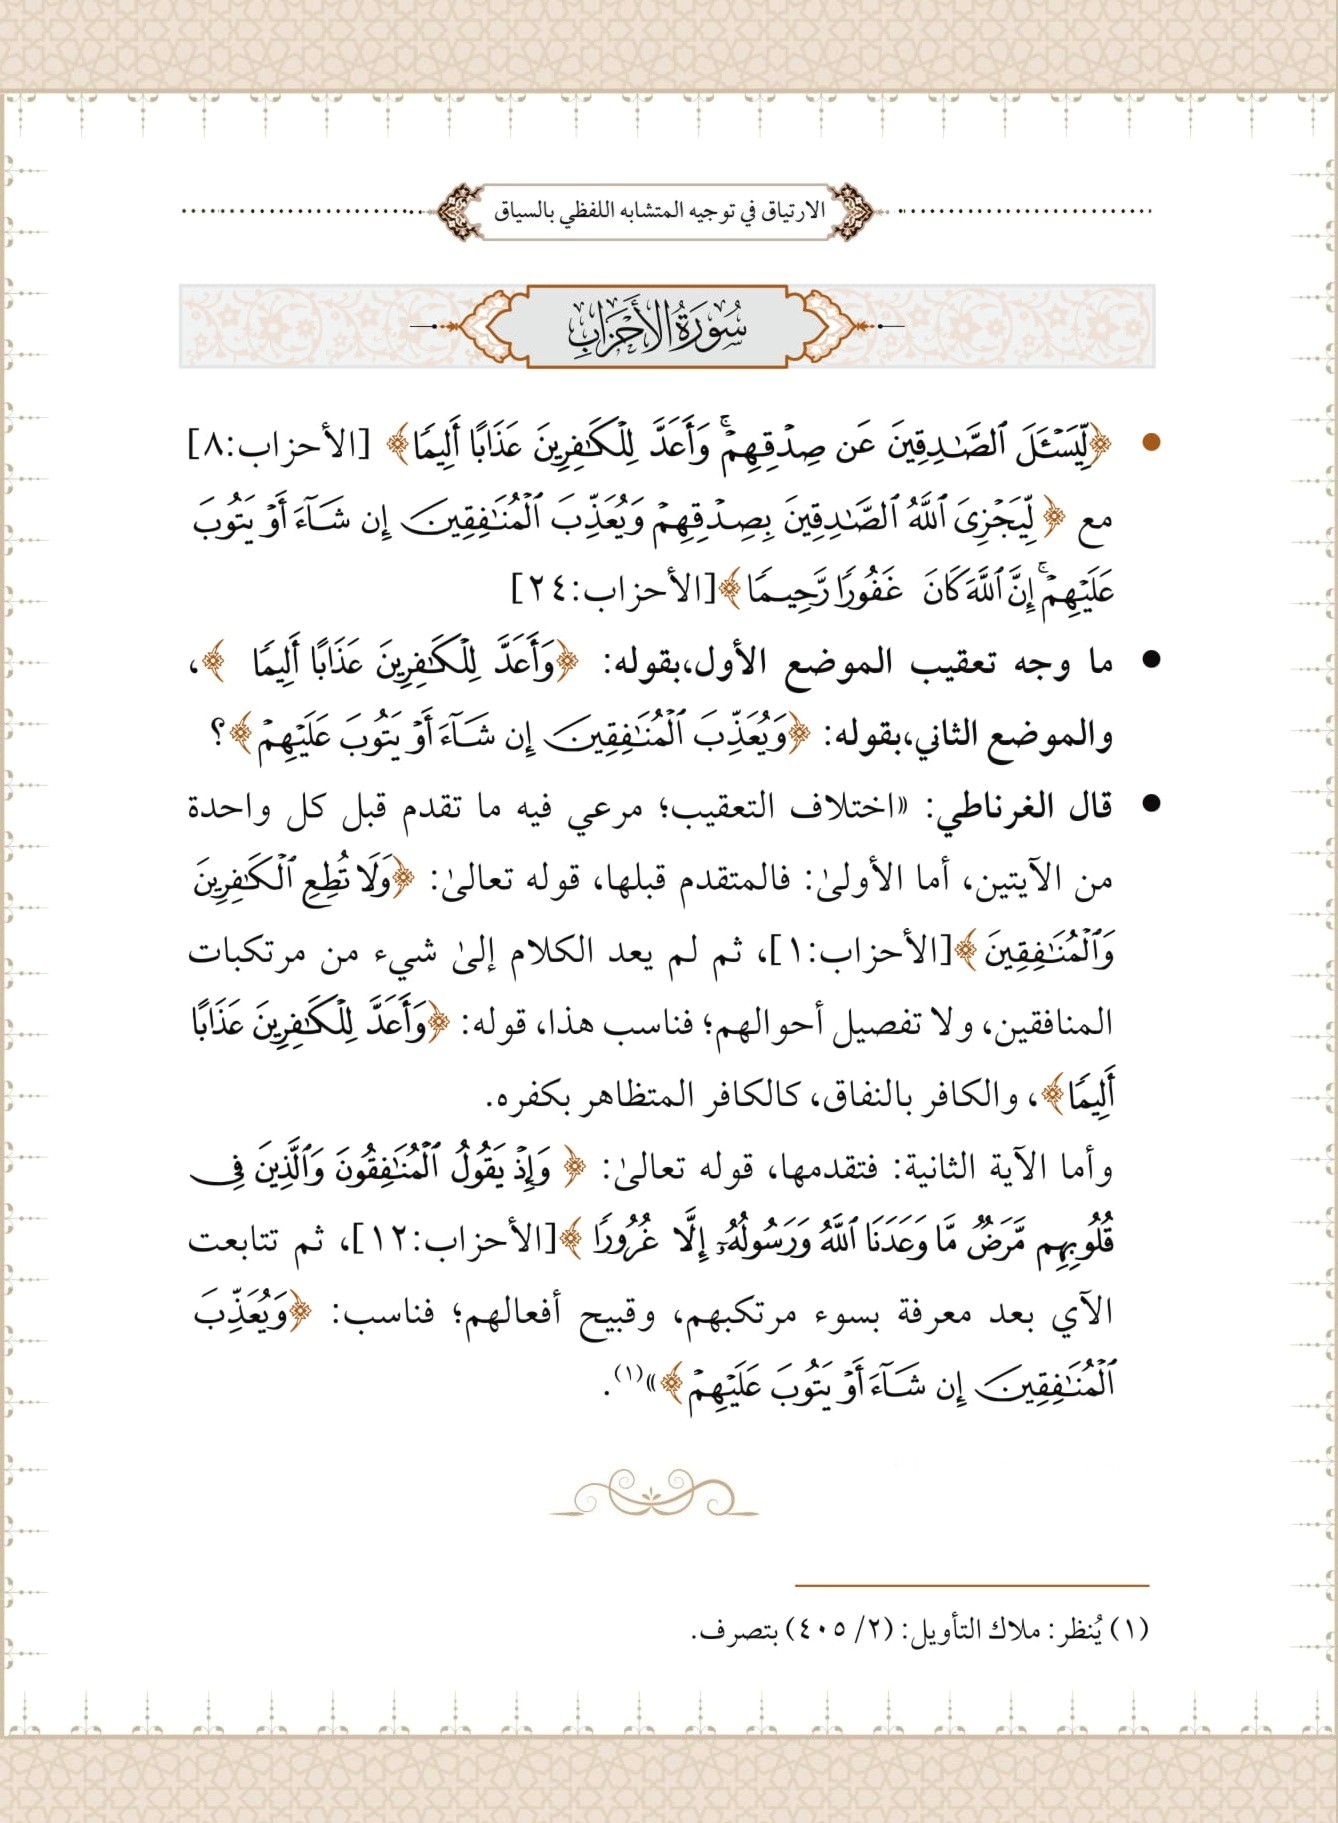 الارتياق في توجيه المتشابه اللفظي بالسياق
سُورَةُ الأَحْزَابِ
• ﴿لِّيَسْـَٔلَ ٱلصَّـٰدِقِينَ عَن صِدْقِهِمْۚ وَأَعَدَّ لِلْكَـٰفِرِينَ عَذَابًا أَلِيمًا﴾ [الأحزاب:٨]
مع ﴿لِّيَجْزِىَ ٱللَّهُ ٱلصَّـٰدِقِينَ بِصِدْقِهِمْ وَيُعَذِّبَ ٱلْمُنَـٰفِقِينَ إِن شَآءَ أَوْ يَتُوبَ
عَلَيْهِمْۚ إِنَّ ٱللَّهَ كَانَ غَفُورًا رَّحِيمًا﴾[الأحزاب:٢٤]
• ما وجه تعقيب الموضع الأول،بقوله: ﴿وَأَعَدَّ لِلْكَـٰفِرِينَ عَذَابًا أَلِيمًا﴾،
والموضع الثاني،بقوله: ﴿وَيُعَذِّبَ ٱلْمُنَـٰفِقِينَ إِن شَآءَ أَوْ يَتُوبَ عَلَيْهِمْ﴾؟
• قال الغرناطي: «اختلاف التعقيب؛ مرعي فيه ما تقدم قبل كل واحدة
من الآيتين، أما الأولىٰ: فالمتقدم قبلها، قوله تعالىٰ: ﴿وَلَا تُطِعِ ٱلْكَـٰفِرِينَ
وَٱلْمُنَـٰفِقِينَ﴾[الأحزاب:١]، ثم لم يعد الكلام إلىٰ شيء من مرتكبات
المنافقين، ولا تفصيل أحوالهم؛ فناسب هذا، قوله: ﴿وَأَعَدَّ لِلْكَـٰفِرِينَ عَذَابًا
أَلِيمًا﴾، والكافر بالنفاق، كالكافر المتظاهر بكفره.
وأما الآية الثانية: فتقدمها، قوله تعالىٰ: ﴿وَإِذْ يَقُولُ ٱلْمُنَـٰفِقُونَ وَٱلَّذِينَ فِى
قُلُوبِهِم مَّرَضٌ مَّا وَعَدَنَا ٱللَّهُ وَرَسُولُهُۥٓ إِلَّا غُرُورًا﴾[الأحزاب:١٢]، ثم تتابعت
الآي بعد معرفة بسوء مرتكبهم، وقبيح أفعالهم؛ فناسب: ﴿وَيُعَذِّبَ
ٱلْمُنَـٰفِقِينَ إِن شَآءَ أَوْ يَتُوبَ عَلَيْهِمْ﴾»(١).
(١) يُنظر: ملاك التأويل: (٢/ ٤٠٥) بتصرف.